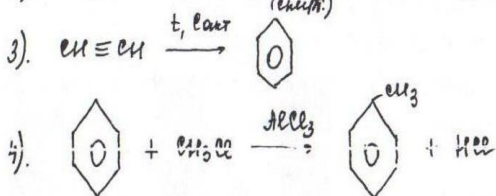 3). CH ≡ CH t, Cакт →
4). + CH₃Cl AlCl₃ → CH₃ + HCl